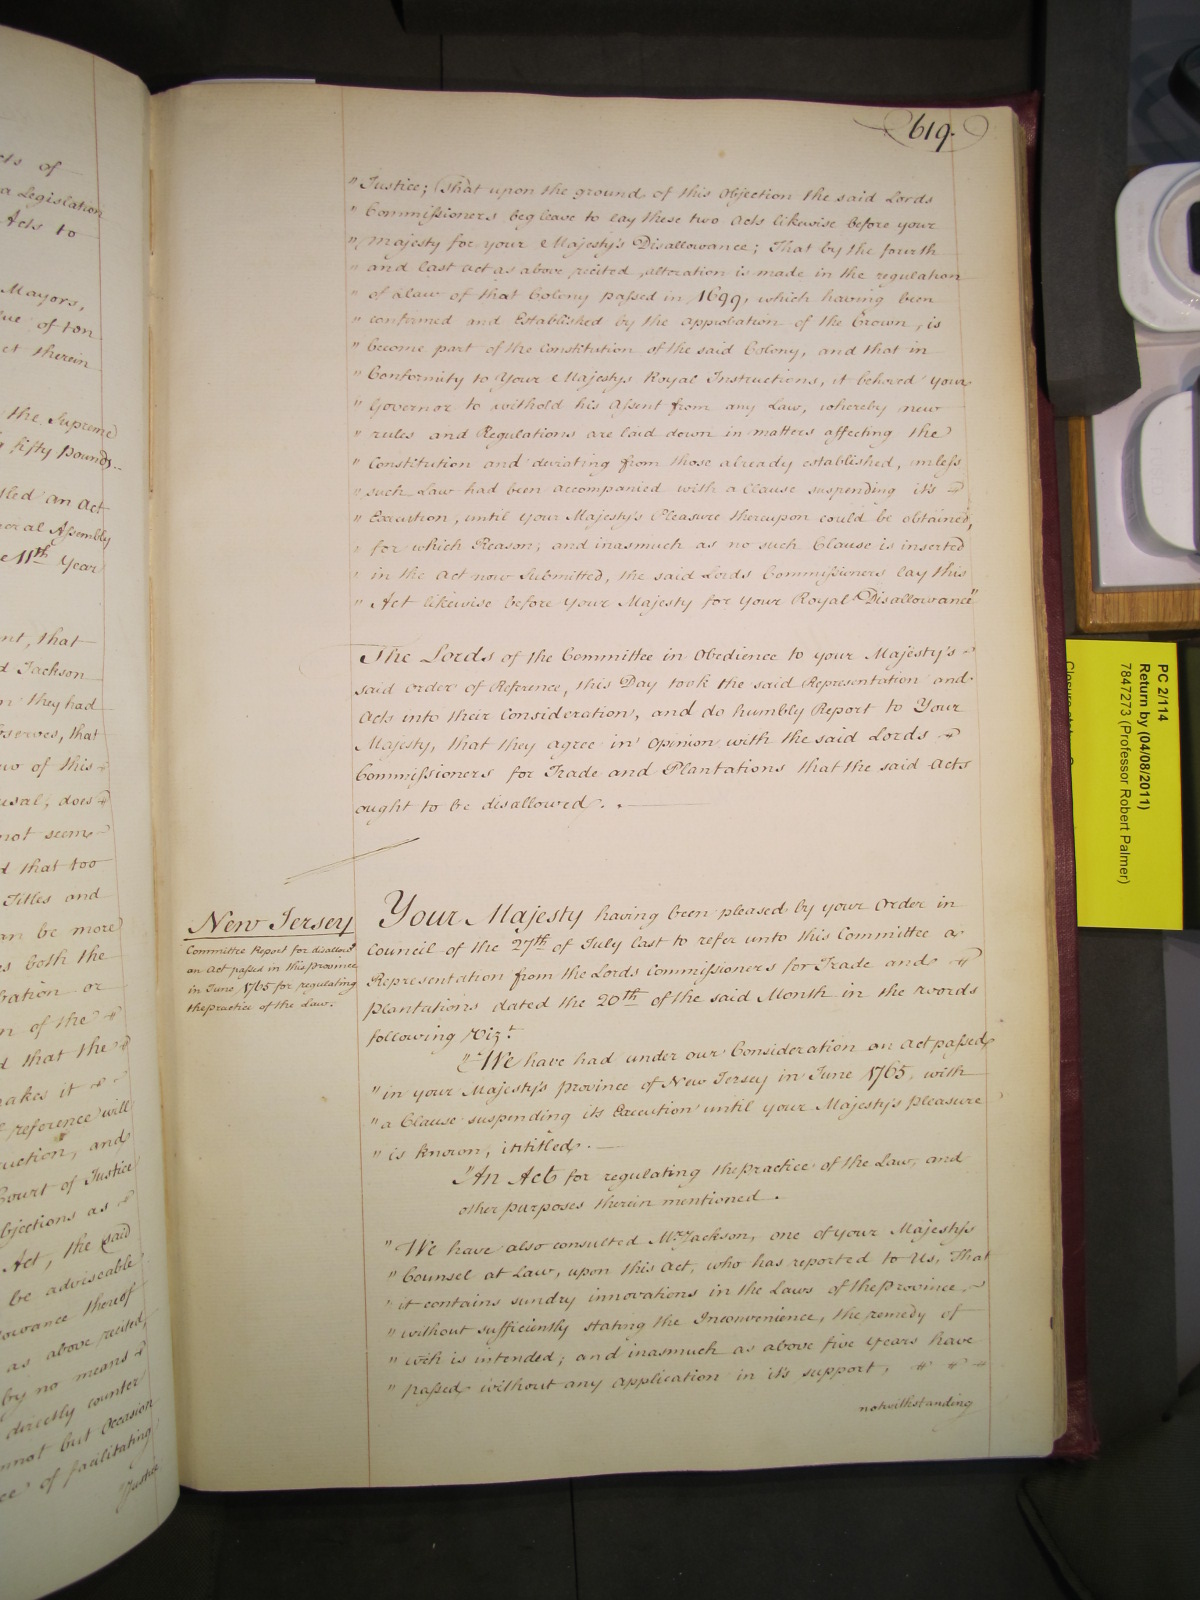 cts of
a Legislation
Acts to
Mayors,
of ton
ct therein
the Supreme
fifty Pounds
tled an Act
neral Assembly
11th Year
nt, that
d Jackson
n they had
bserves, that
wo of this
usal, does
not seem
d that too
Titles and
an be more
es both the
bration or
n of the
d that the
akes it
reference will
ruction, and
Court of Justice
bjections as
Act, the said
be adviseable
lowance thereof
as above recited,
by no means
directly counter
nnot but Occasion
ce of facilitating
Justice
619.
" Justice; That upon the ground of this Objection the said Lords
" Commissioners beg leave to lay these two Acts likewise before your
" Majesty for your Majesty's Disallowance; That by the fourth
" and last act as above recited, alteration is made in the regulation
" of a law of that Colony passed in 1699, which having been
" confirmed and Established by the approbation of the Crown, is
" become part of the Constitution of the said Colony, and that in
" Conformity to Your Majestys Royal Instructions, it behoved your
" Governor to withold his Assent from any Law, whereby new
" rules and Regulations are laid down in matters affecting the
" Constitution and deviating from those already established, unless
" such Law had been accompanied with a Clause suspending it's
" Execution, until your Majesty's Pleasure thereupon could be obtained,
" for which Reason, and inasmuch as no such Clause is inserted
" in the Act now Submitted, the said Lords Commissioners lay this
" Act likewise before your Majesty for your Royal Disallowance"
The Lords of the Committee in Obedience to your Majesty's
said Order of Reference, this Day took the said Representation and
Acts into their Consideration, and do humbly Report to Your
Majesty, that they agree in Opinion with the said Lords
Commissioners for Trade and Plantations that the said Acts
ought to be disallowed.
New Jersey
Committee Report for disallowg
an Act passed in this province
in June 1765 for regulating
the practice of the Law.
Your Majesty having been pleased by your Order in
Council of the 27th of July last to refer unto this Committee a
Representation from the Lords Commissioners for Trade and
Plantations dated the 20th of the said Month in the words
following Vizt
" We have had under our Consideration an Act passed
" in your Majesty's province of New Jersey in June 1765, with
" a Clause suspending its Execution until your Majesty's pleasure
" is known, intitled.
"An Act for regulating the practice of the Law, and
other purposes therein mentioned.
" We have also consulted Mr Jackson, one of your Majesty's
" Counsel at Law, upon this Act, who has reported to Us, That
" it contains sundry innovations in the Laws of the Province
" without sufficiently stating the Inconvenience, the remedy of
" wch is intended; and inasmuch as above five years have
" passed without any application in it's support,
notwithstanding
PC 2/114
Return by (04/08/2011)
7847273 (Professor Robert Palmer)